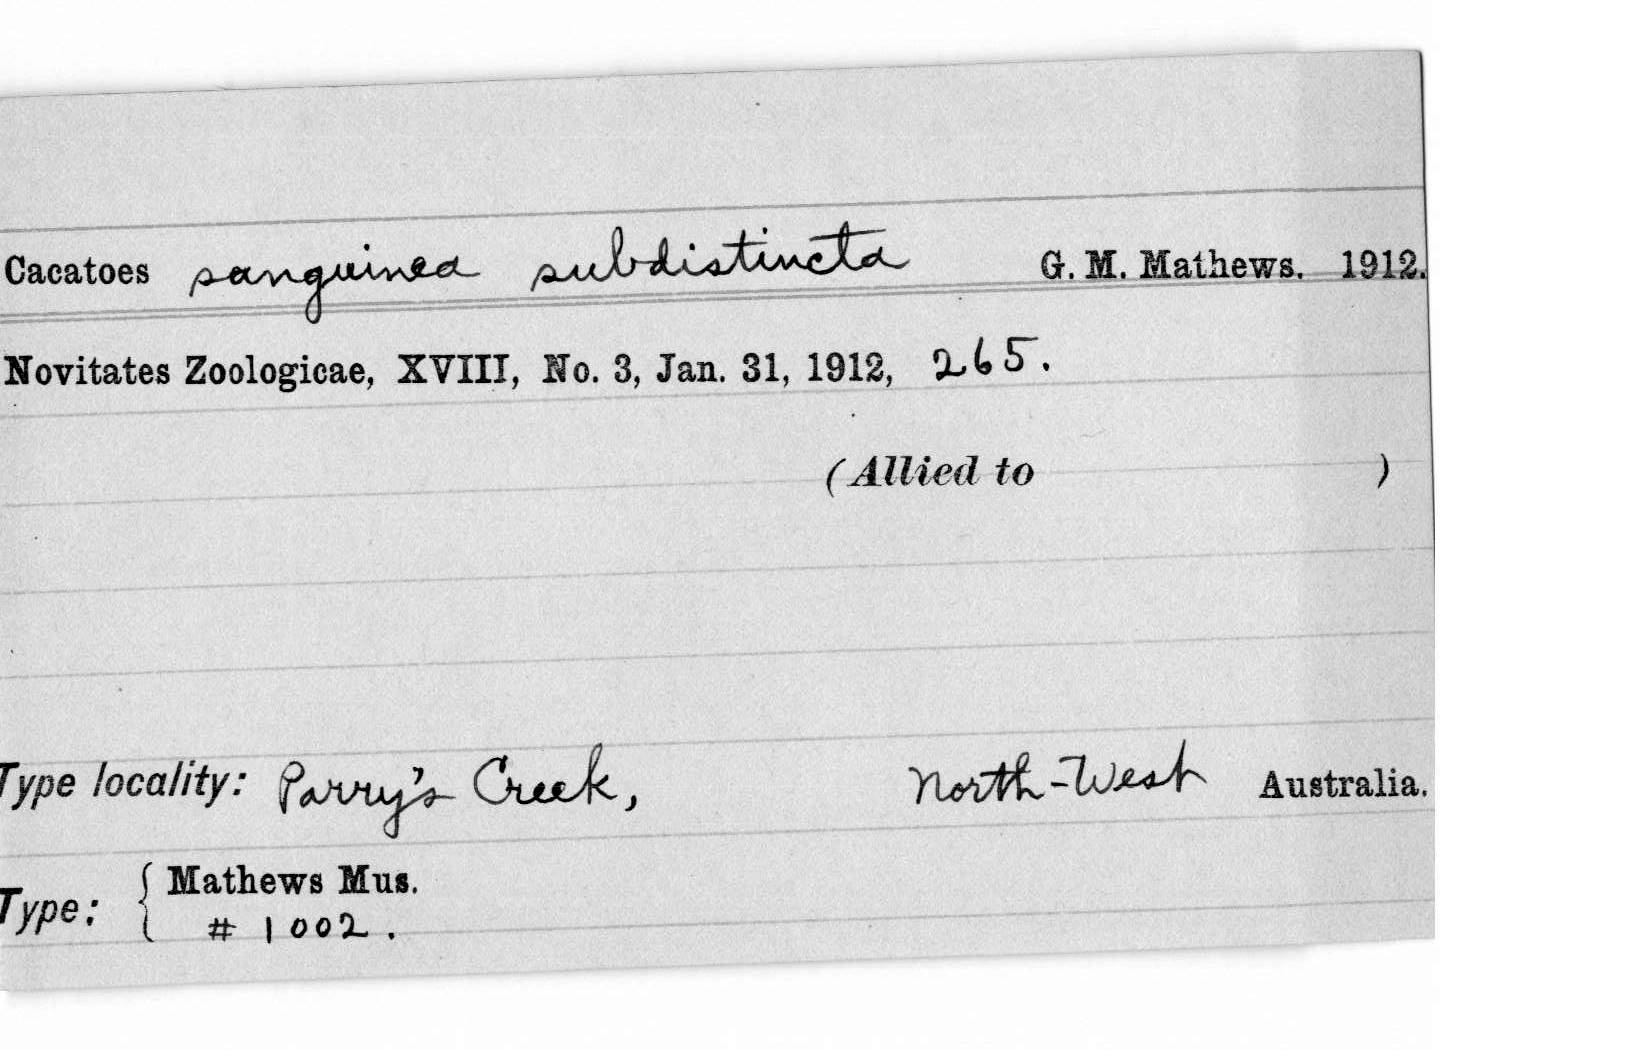 Cacatoes sanguinea subdistincta G. M. Mathews. 1912.
Novitates Zoologicae, XVIII, No. 3, Jan. 31, 1912, 265.
(Allied to )
Type locality: Parry's Creek, North-West Australia.
Type: { Mathews Mus.
# 1002.